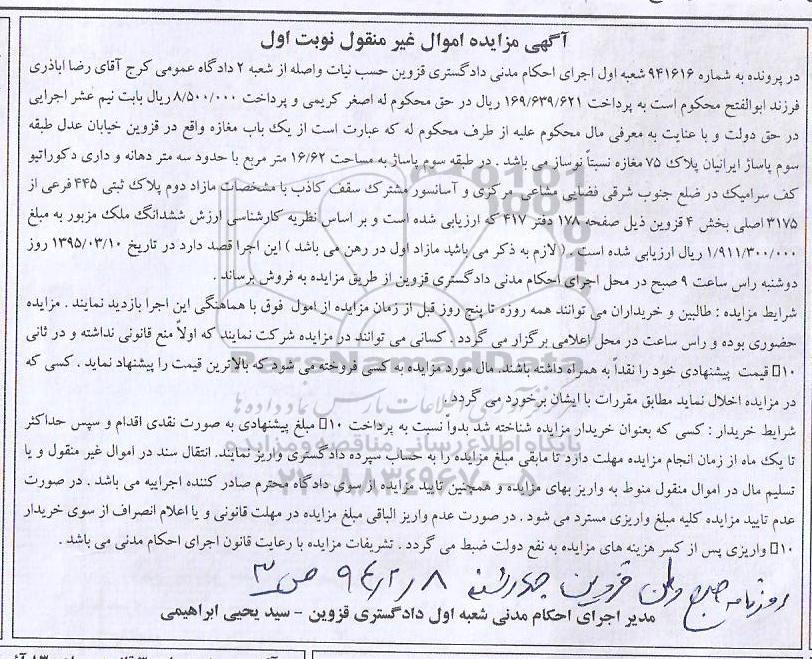 آگهی مزایده اموال غیر منقول نوبت اول
در پرونده به شماره ۹۴۱۶۱۶ شعبه اول اجرای احکام مدنی دادگستری قزوین حسب نیات واصله از شعبه ۲ دادگاه عمومی کرج آقای رضا اباذری
فرزند ابوالفتح محکوم است به پرداخت ۱۶۹/۶۳۹/۶۲۱ ریال در حق محکوم له اصغر کریمی و پرداخت ۸/۵۰۰/۰۰۰ ریال بابت نیم عشر اجرایی
در حق دولت و با عنایت به معرفی مال محکوم علیه از طرف محکوم له که عبارت است از یک باب مغازه واقع در قزوین خیابان عدل طبقه
سوم پاساژ ایرانیان پلاک ۷۵ مغازه نسبتاً نوساز می باشد . در طبقه سوم پاساژ به مساحت ۱۶/۶۲ متر مربع با حدود سه متر دهانه و داری دکوراتیو
کف سرامیک در ضلع جنوب شرقی فضایی مشاعی مرکزی و آسانسور مشترک سقف کاذب با مشخصات مازاد دوم پلاک ثبتی ۴۴۵ فرعی از
۳۱۷۵ اصلی بخش ۴ قزوین ذیل صفحه ۱۷۸ دفتر ۴۱۷ که ارزیابی شده است و بر اساس نظریه کارشناسی ارزش ششدانگ ملک مزبور به مبلغ
۱/۹۱۱/۳۰۰/۰۰۰ ریال ارزیابی شده است . ( لازم به ذکر می باشد مازاد اول در رهن می باشد ) این اجرا قصد دارد در تاریخ ۱۳۹۵/۰۳/۱۰ روز
دوشنبه راس ساعت ۹ صبح در محل اجرای احکام مدنی دادگستری قزوین از طریق مزایده به فروش برساند .
شرایط مزایده : طالبین و خریداران می توانند همه روزه تا پنج روز قبل از زمان مزایده از امول فوق با هماهنگی این اجرا بازدید نمایند . مزایده
حضوری بوده و راس ساعت در محل اعلامی برگزار می گردد . کسانی می توانند در مزایده شرکت نمایند که اولاً منع قانونی نداشته و در ثانی
۱۰□ قیمت پیشنهادی خود را نقداً به همراه داشته باشند. مال مورد مزایده به کسی فروخته می شود که بالاترین قیمت را پیشنهاد نماید . کسی که
در مزایده اخلال نماید مطابق مقررات با ایشان برخورد می گردد .
شرایط خریدار : کسی که بعنوان خریدار مزایده شناخته شد بدوا نسبت به پرداخت ۱۰□ مبلغ پیشنهادی به صورت نقدی اقدام و سپس حداکثر
تا یک ماه از زمان انجام مزایده مهلت دارد تا مابقی مبلغ مزایده را به حساب سپرده دادگستری واریز نمایند. انتقال سند در اموال غیر منقول و یا
تسلیم مال در اموال منقول منوط به واریز بهای مزایده و همچنین تایید مزایده از سوی دادگاه محترم صادر کننده اجراییه می باشد . در صورت
عدم تایید مزایده کلیه مبلغ واریزی مسترد می شود . در صورت عدم واریز الباقی مبلغ مزایده در مهلت قانونی و یا اعلام انصراف از سوی خریدار
۱۰□ واریزی پس از کسر هزینه های مزایده به نفع دولت ضبط می گردد . تشریفات مزایده با رعایت قانون اجرای احکام مدنی می باشد .
روزنامه صبح ولی قزوین چهارشنبه ص ۳
مدیر اجرای احکام مدنی شعبه اول دادگستری قزوین - سید یحیی ابراهیمی
ParsNamadData
پایگاه اطلاع رسانی مناقصه و مزایده
۰۲۱-۸۸۳۴۹۶۷۰-۵